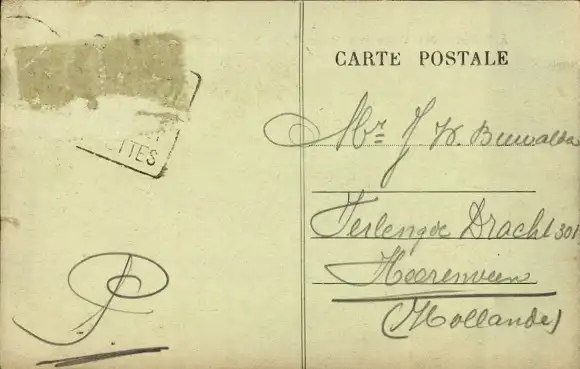 CARTE POSTALE
TTES
Mr J W. Buwalda
Terlengde Dracht 301
Heerenveen
(Hollande)
P.